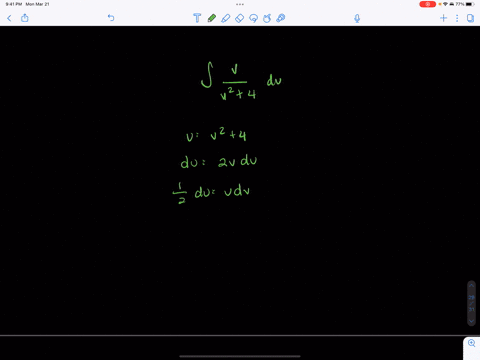 9:41 PM Mon Mar 21
77%
∫ v/(v²+4) dv
u = v²+4
du = 2v dv
1/2 du = v dv